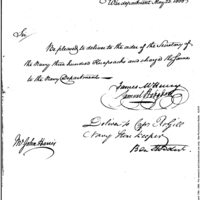 War department May 23. 1800
Sir,
Be pleased to deliver to the order of the Secretary of
the Navy three hundred Knapsacks and charge the same
to the Navy Department
James McHenry
Samuel Hodgdon
Mr John Harris
Deliver to Capt
Navy Store Keeper
Ben Stoddert